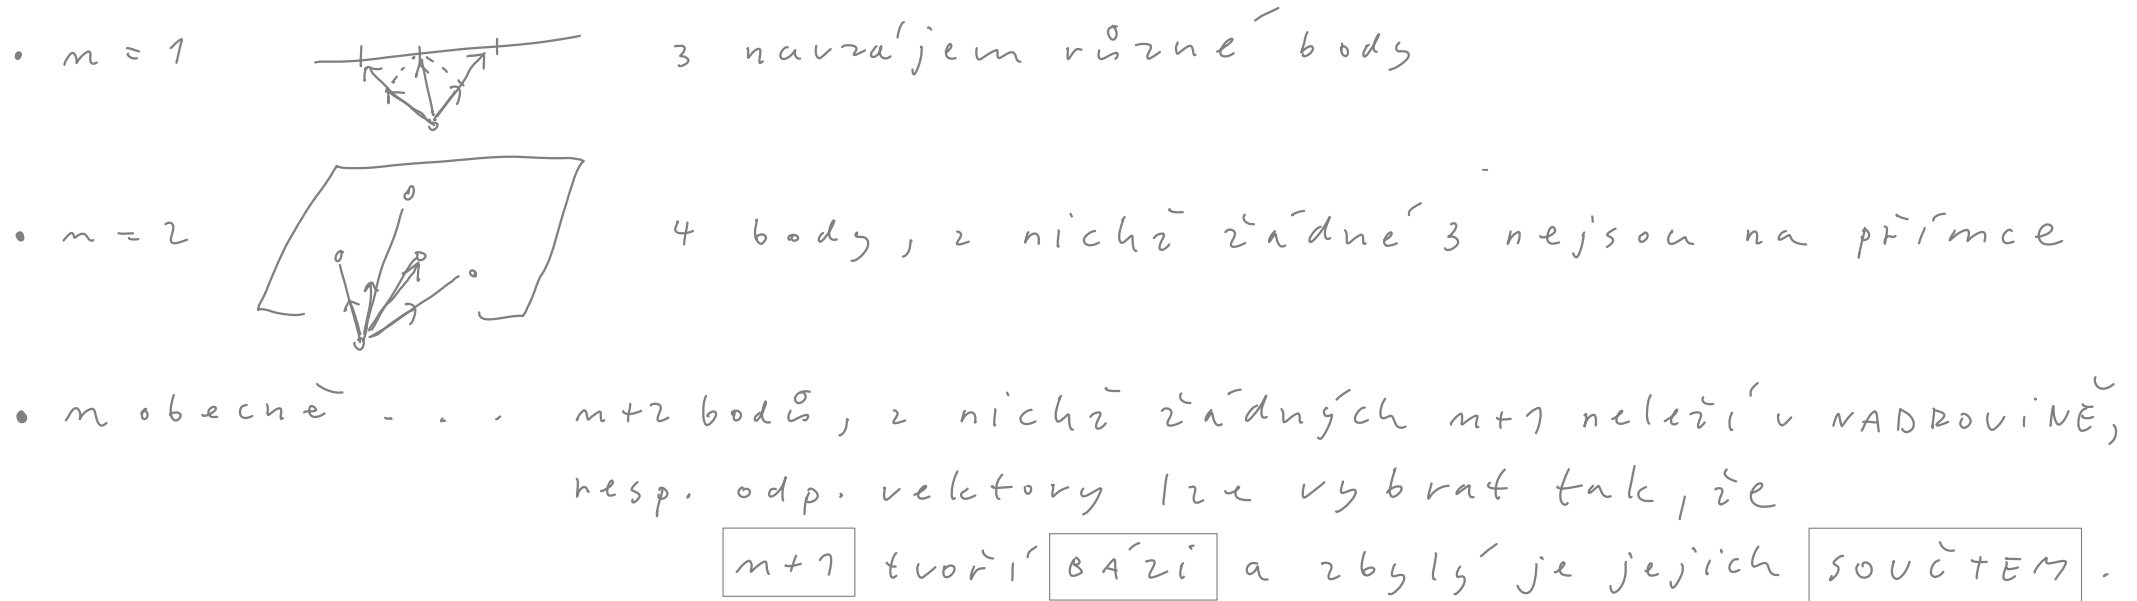 • n = 1 3 navzájem různé body
• n = 2 4 body, z nichž žádné 3 nejsou na přímce
• n obecně . . . n+2 bodů, z nichž žádných n+1 neleží v NADROVINĚ,
resp. odp. vektory lze vybrat tak, že
n+1 tvoří BÁZI a zbylý je jejich SOUČTEM.